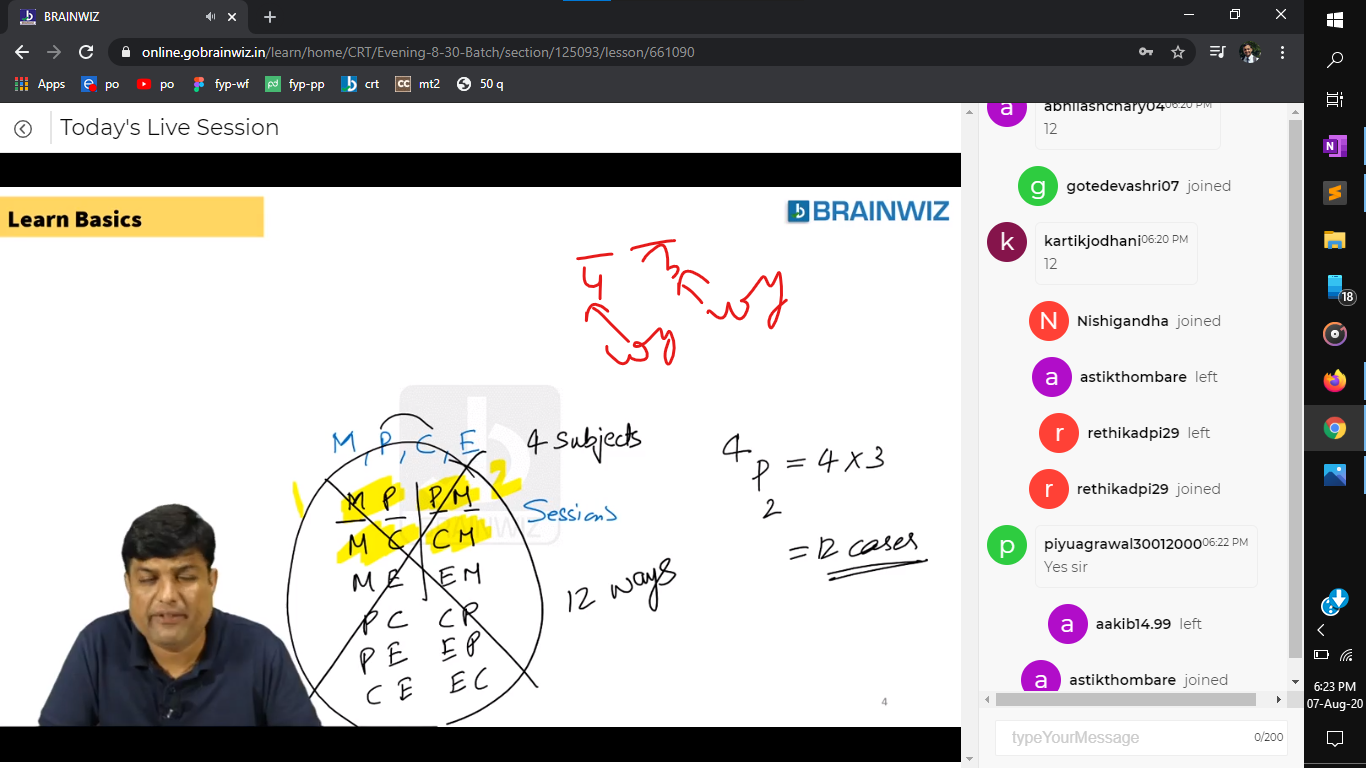 BRAINWIZ
online.gobrainwiz.in/learn/home/CRT/Evening-8-30-Batch/section/125093/lesson/661090
Apps po po fyp-wf fyp-pp crt mt2 50 q
Today's Live Session
Learn Basics
BRAINWIZ
4 3
way way
M, P, C, E 4 Subjects
1 M P P M 2
Sessions
M C C M
M E E M
12 ways
P C C P
P E E P
C E E C
4 P 2 = 4 x 3
= 12 cases
BRAINWIZ
4
abhilashchary04 06:20 PM
12
gotedevashri07 joined
kartikjodhani 06:20 PM
12
Nishigandha joined
astikthombare left
rethikadpi29 left
rethikadpi29 joined
piyuagrawal30012000 06:22 PM
Yes sir
aakib14.99 left
astikthombare joined
typeYourMessage 0/200
18
6:23 PM
07-Aug-20